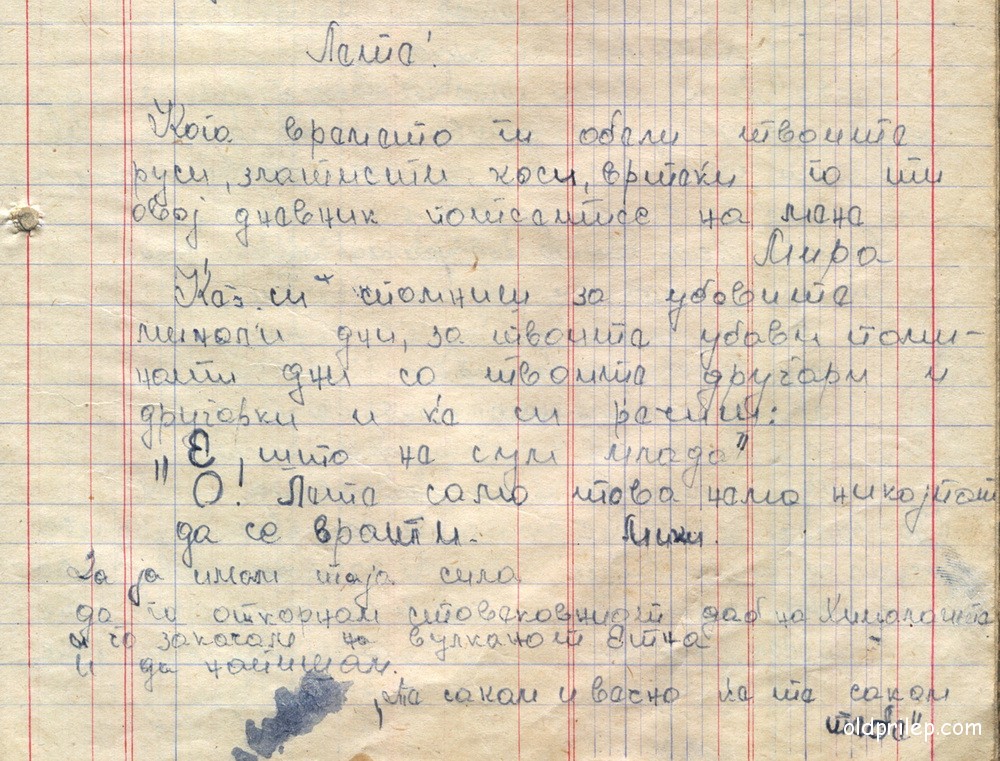 Пепа!
Кога времето ти обели твоите
руси, златисти коси, вритеќи го ти
овој дневник потсетисе на мене
Мира
Ќа си спомниш за убовите
минати дни, за твоите убави поми-
нати дни со твоите другари и
другарки и ќа си речиш:
"Е, што на сум млада"
О! Пепа само това немо никојпат
да се врати.
Да ја имам таја сила
да го откорнам стовековниот даб на Хималаите
и го закачам на вулканот Етна
и да напишам.
"Те сакам и васно ќа та сакам
тебе"
oldprilep.com